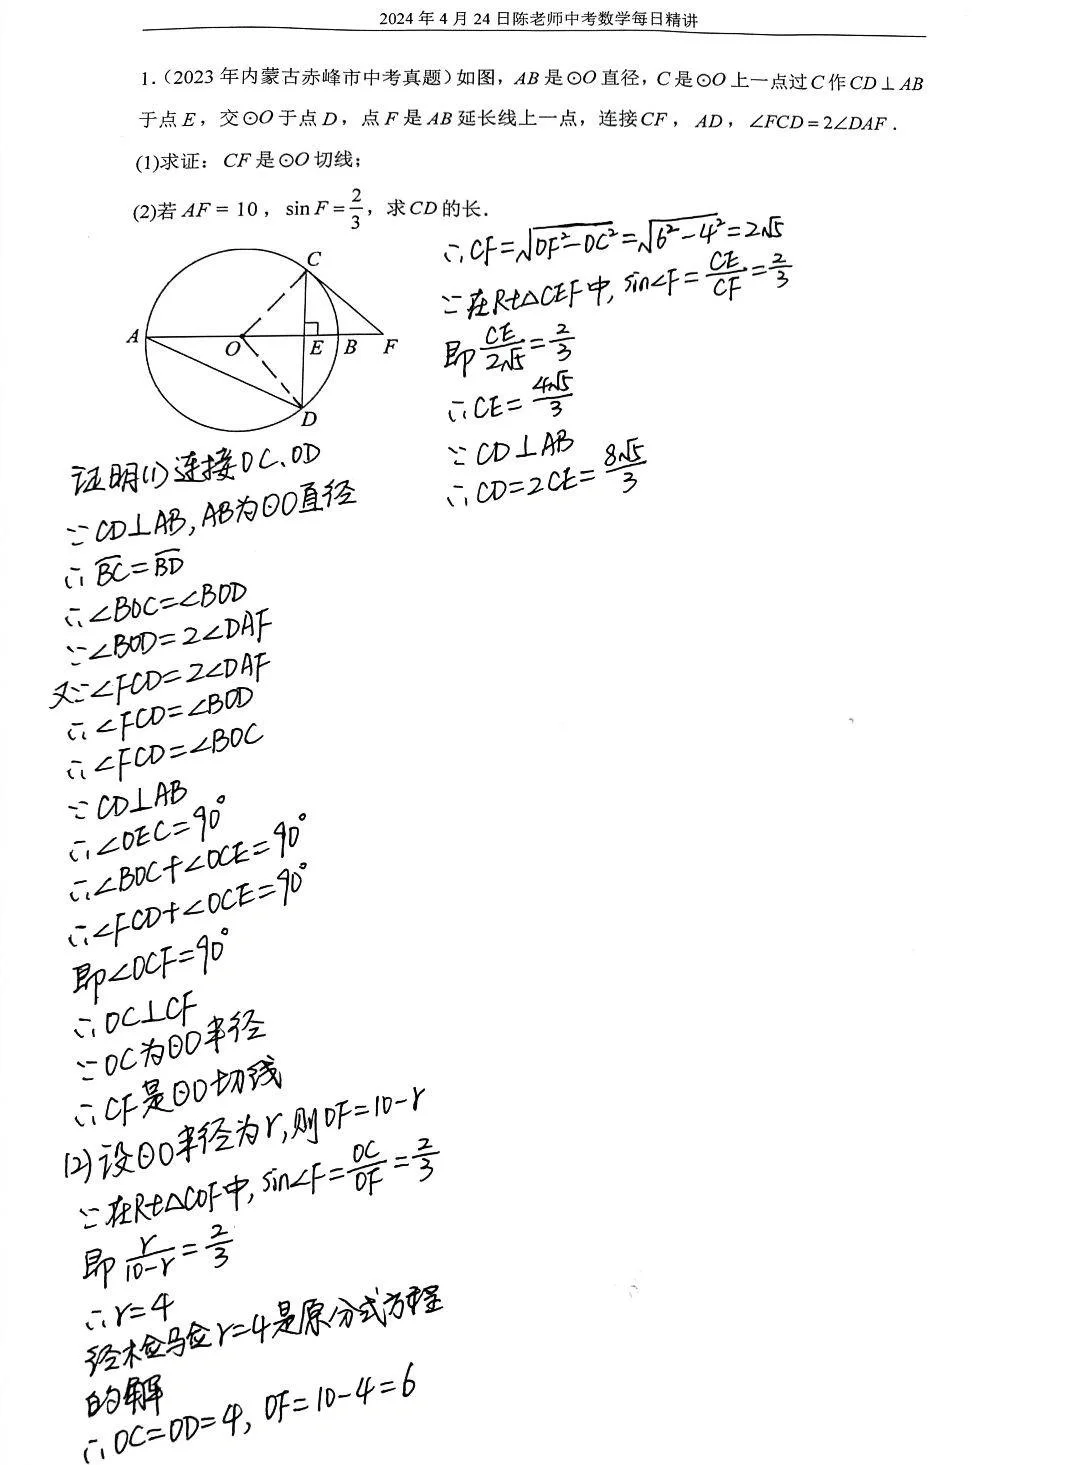 2024 年 4 月 24 日陈老师中考数学每日精讲
1.（2023 年内蒙古赤峰市中考真题）如图，AB 是⊙O 直径，C 是⊙O 上一点过 C 作 CD⊥AB
于点 E，交⊙O 于点 D，点 F 是 AB 延长线上一点，连接 CF，AD，∠FCD=2∠DAF．
(1)求证：CF 是⊙O 切线；
(2)若 AF = 10，sin F = 2/3，求 CD 的长．
C
A
O
E
B
F
D
证明(1)连接OC、OD
∵CD⊥AB,AB为⊙O直径
∴B͡C=B͡D
∴∠BOC=∠BOD
∵∠BOD=2∠DAF
又∵∠FCD=2∠DAF
∴∠FCD=∠BOD
∴∠FCD=∠BOC
∵CD⊥AB
∴∠OEC=90°
∴∠BOC+∠OCE=90°
∴∠FCD+∠OCE=90°
即∠OCF=90°
∴OC⊥CF
∵OC为⊙O半径
∴CF是⊙O切线
(2)设⊙O半径为r,则OF=10-r
∵在Rt△COF中,sin∠F=OC/OF=2/3
即 r/(10-r)=2/3
∴r=4
经检验r=4是原分式方程
的解
∴OC=OD=4, OF=10-4=6
∴CF=√(OF²-OC²)=√(6²-4²)=2√5
∵在Rt△CEF中,sin∠F=CE/CF=2/3
即 CE/2√5=2/3
∴CE=4√5/3
∵CD⊥AB
∴CD=2CE=8√5/3